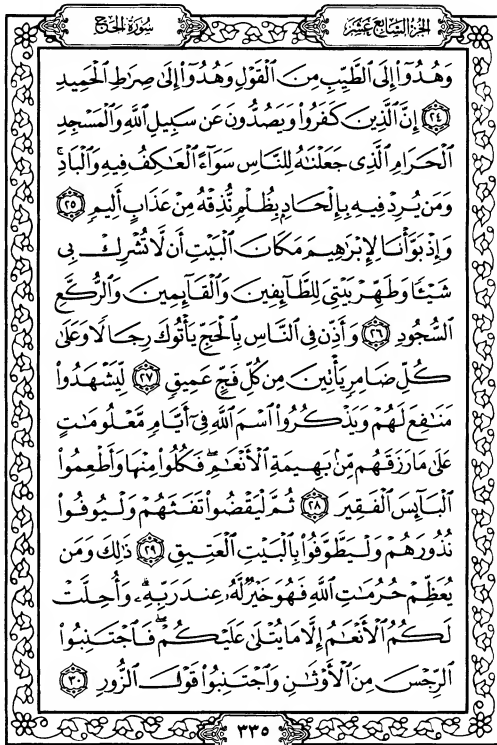 سُورَةُ الحَجِّ
الجُزْءُ السَّابِعَ عَشَرَ
وَهُدُوٓاْ إِلَى ٱلطَّيِّبِ مِنَ ٱلْقَوْلِ وَهُدُوٓاْ إِلَىٰ صِرَٰطِ ٱلْحَمِيدِ
٢٤ إِنَّ ٱلَّذِينَ كَفَرُواْ وَيَصُدُّونَ عَن سَبِيلِ ٱللَّهِ وَٱلْمَسْجِدِ
ٱلْحَرَامِ ٱلَّذِى جَعَلْنَٰهُ لِلنَّاسِ سَوَآءً ٱلْعَٰكِفُ فِيهِ وَٱلْبَادِۚ
وَمَن يُرِدْ فِيهِ بِإِلْحَادٍۭ بِظُلْمٍ نُّذِقْهُ مِنْ عَذَابٍ أَلِيمٍ ٢٥
وَإِذْ بَوَّأْنَا لِإِبْرَٰهِيمَ مَكَانَ ٱلْبَيْتِ أَن لَّا تُشْرِكْ بِى
شَيْـًٔا وَطَهِّرْ بَيْتِىَ لِلطَّآئِفِينَ وَٱلْقَآئِمِينَ وَٱلرُّكَّعِ
ٱلسُّجُودِ ٢٦ وَأَذِّن فِى ٱلنَّاسِ بِٱلْحَجِّ يَأْتُوكَ رِجَالًا وَعَلَىٰ
كُلِّ ضَامِرٍ يَأْتِينَ مِن كُلِّ فَجٍّ عَمِيقٍ ٢٧ لِّيَشْهَدُواْ
مَنَٰفِعَ لَهُمْ وَيَذْكُرُواْ ٱسْمَ ٱللَّهِ فِىٓ أَيَّامٍ مَّعْلُومَٰتٍ
عَلَىٰ مَا رَزَقَهُم مِّنۢ بَهِيمَةِ ٱلْأَنْعَٰمِۖ فَكُلُواْ مِنْهَا وَأَطْعِمُواْ
ٱلْبَآئِسَ ٱلْفَقِيرَ ٢٨ ثُمَّ لْيَقْضُواْ تَفَثَهُمْ وَلْيُوفُواْ
نُذُورَهُمْ وَلْيَطَّوَّفُواْ بِٱلْبَيْتِ ٱلْعَتِيقِ ٢٩ ذَٰلِكَ وَمَن
يُعَظِّمْ حُرُمَٰتِ ٱللَّهِ فَهُوَ خَيْرٌ لَّهُۥ عِندَ رَبِّهِۦۗ وَأُحِلَّتْ
لَكُمُ ٱلْأَنْعَٰمُ إِلَّا مَا يُتْلَىٰ عَلَيْكُمْۖ فَٱجْتَنِبُواْ
ٱلرِّجْسَ مِنَ ٱلْأَوْثَٰنِ وَٱجْتَنِبُواْ قَوْلَ ٱلزُّورِ ٣٠
٣٣٥